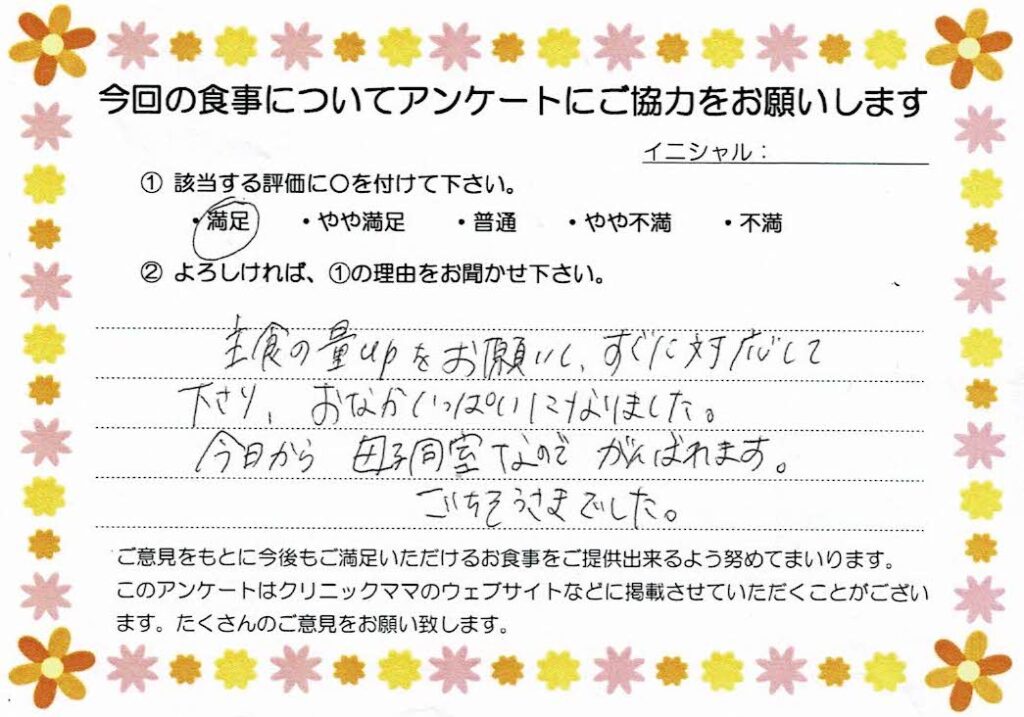 今回の食事についてアンケートにご協力をお願いします
イニシャル：
① 該当する評価に〇を付けて下さい。
・満足 ・やや満足 ・普通 ・やや不満 ・不満
② よろしければ、①の理由をお聞かせ下さい。
主食の量upをお願いし、すぐに対応して
下さり、おなかいっぱいになりました。
今日から母子同室なのでがんばれます。
ごちそうさまでした。
ご意見をもとに今後もご満足いただけるお食事をご提供出来るよう努めてまいります。
このアンケートはクリニックママのウェブサイトなどに掲載させていただくことがござい
ます。たくさんのご意見をお願い致します。